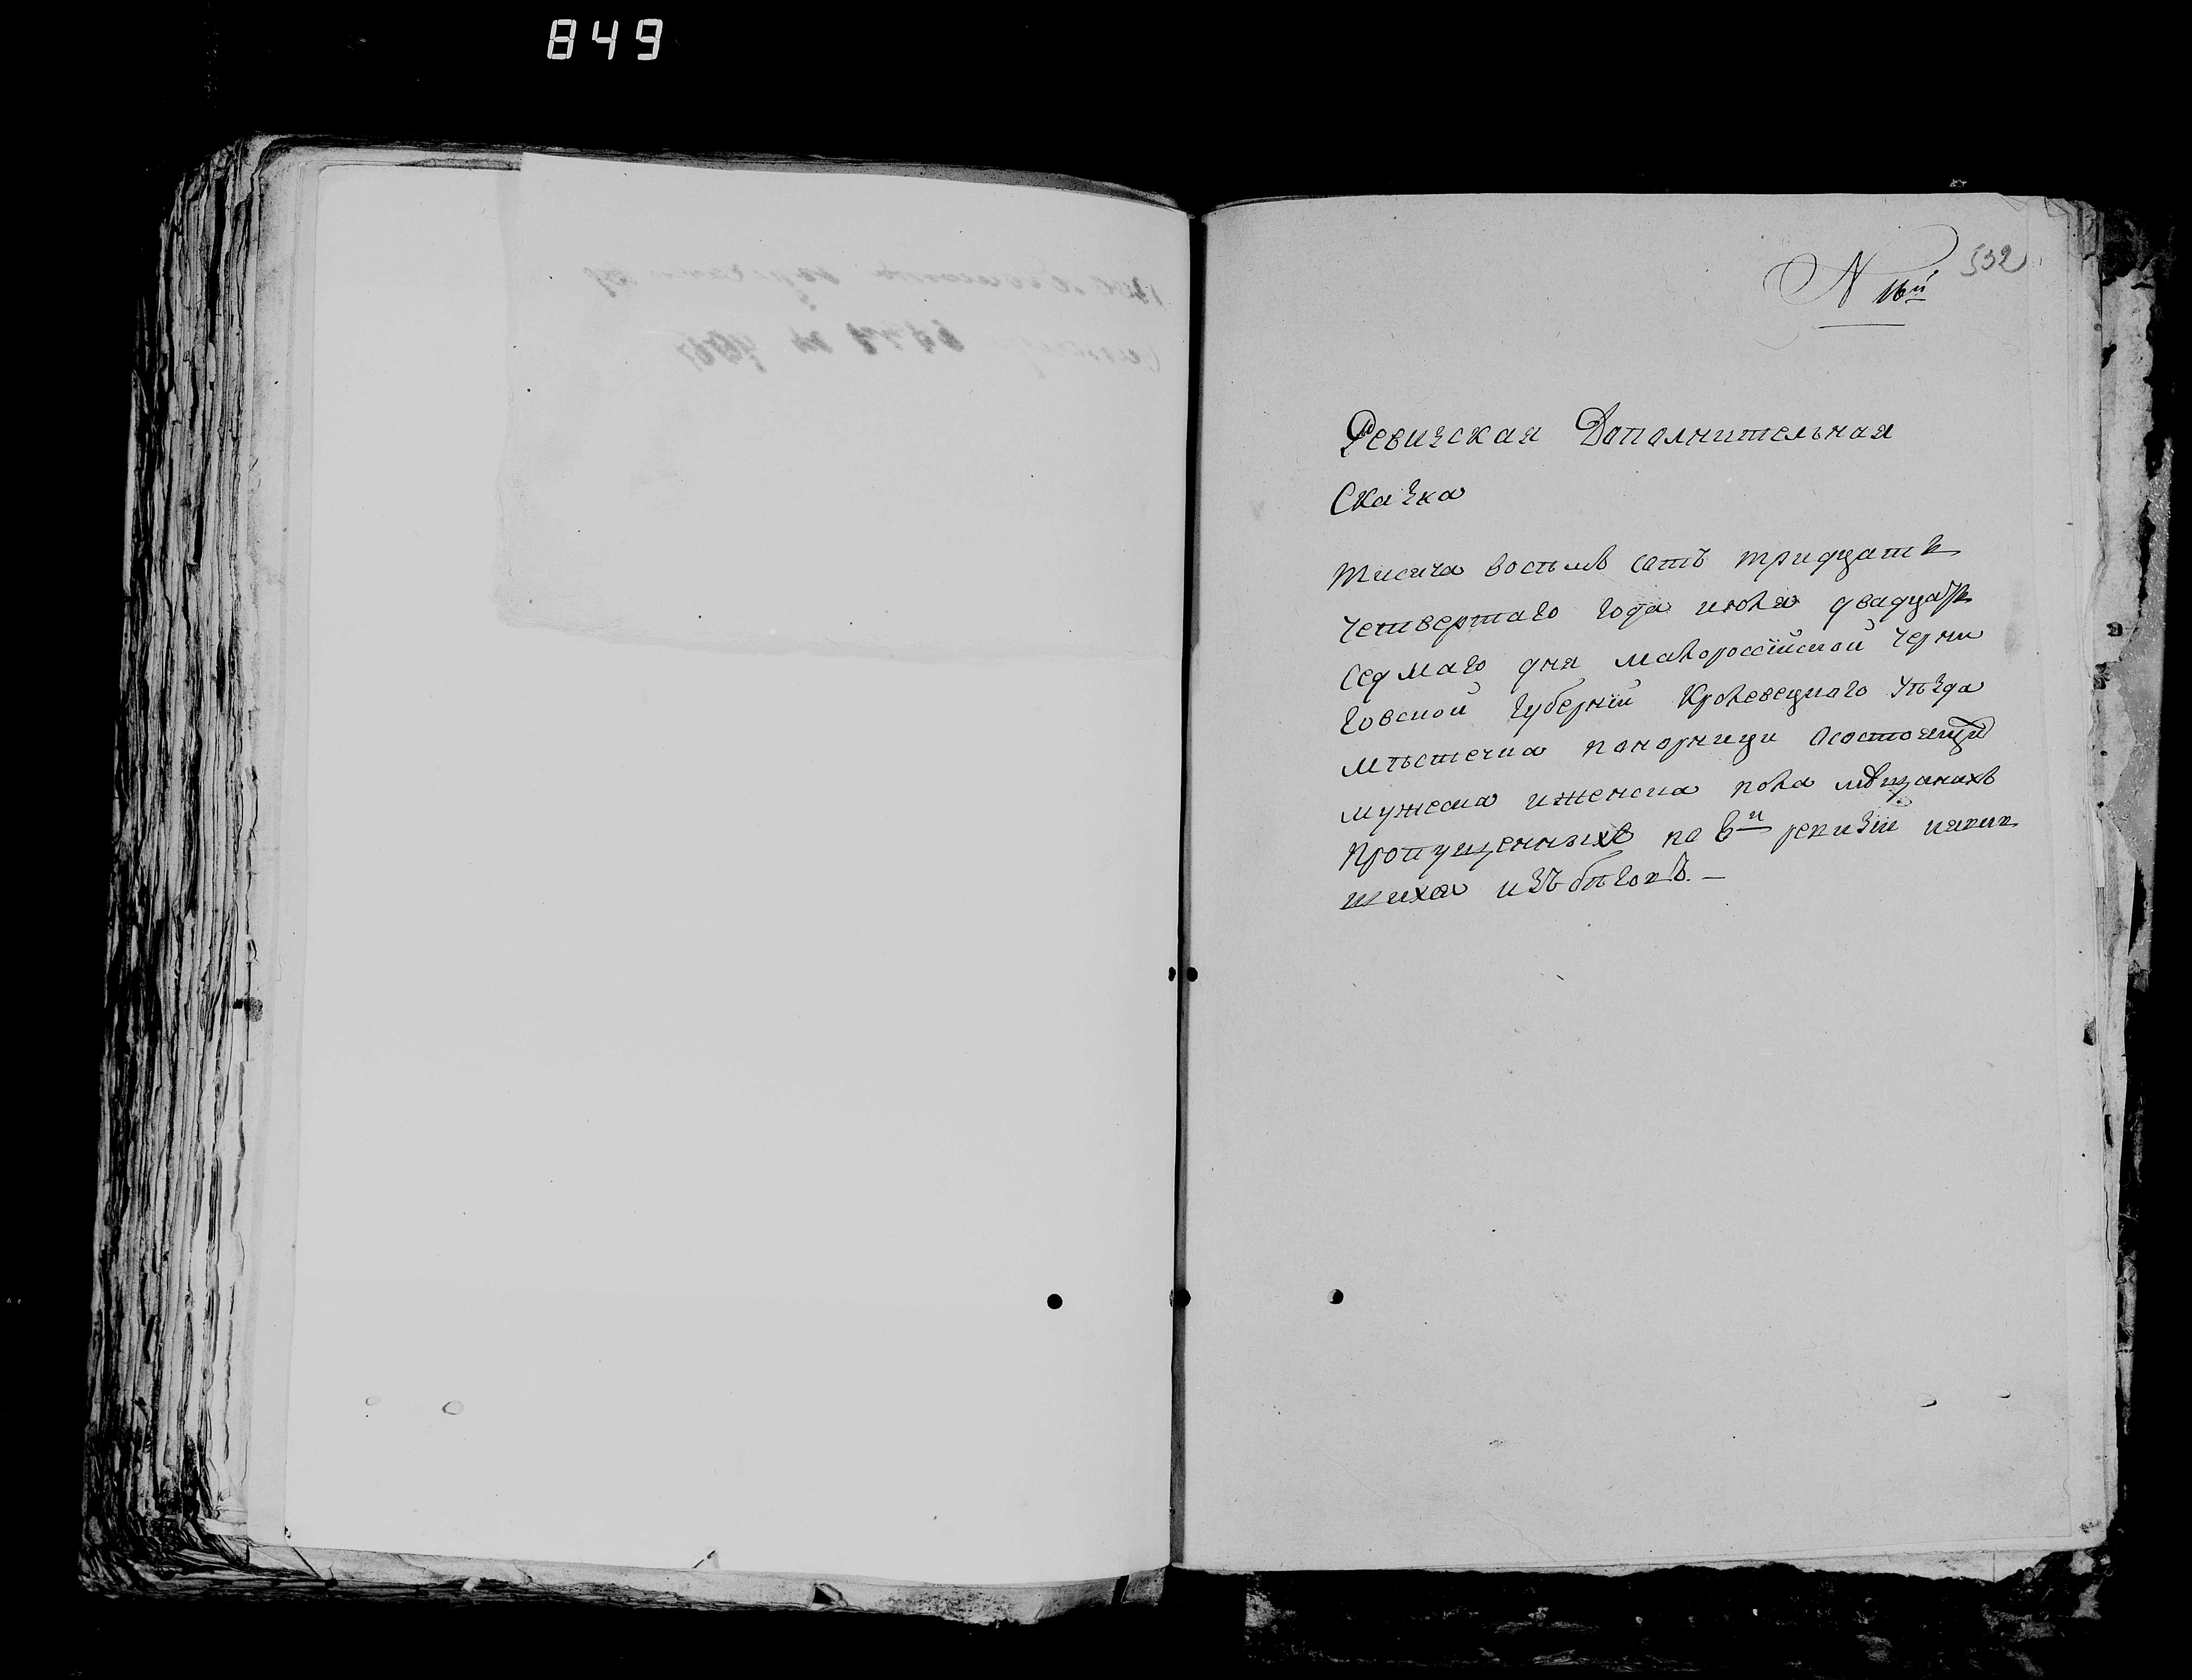 849
532
N 16й
Ревизская Дополнительная
Сказка
тисяча восъмъ сотъ тридцать
четвертаго года июля двадцать
седмаго дня малороссійской Черни
говской Губерніи Кролевецкаго уѣзда
мѣстечка понорници осостоящи
мужеска иженска пола мѣщанахъ
пропущенныхъ по
изъ бѣговъ. —